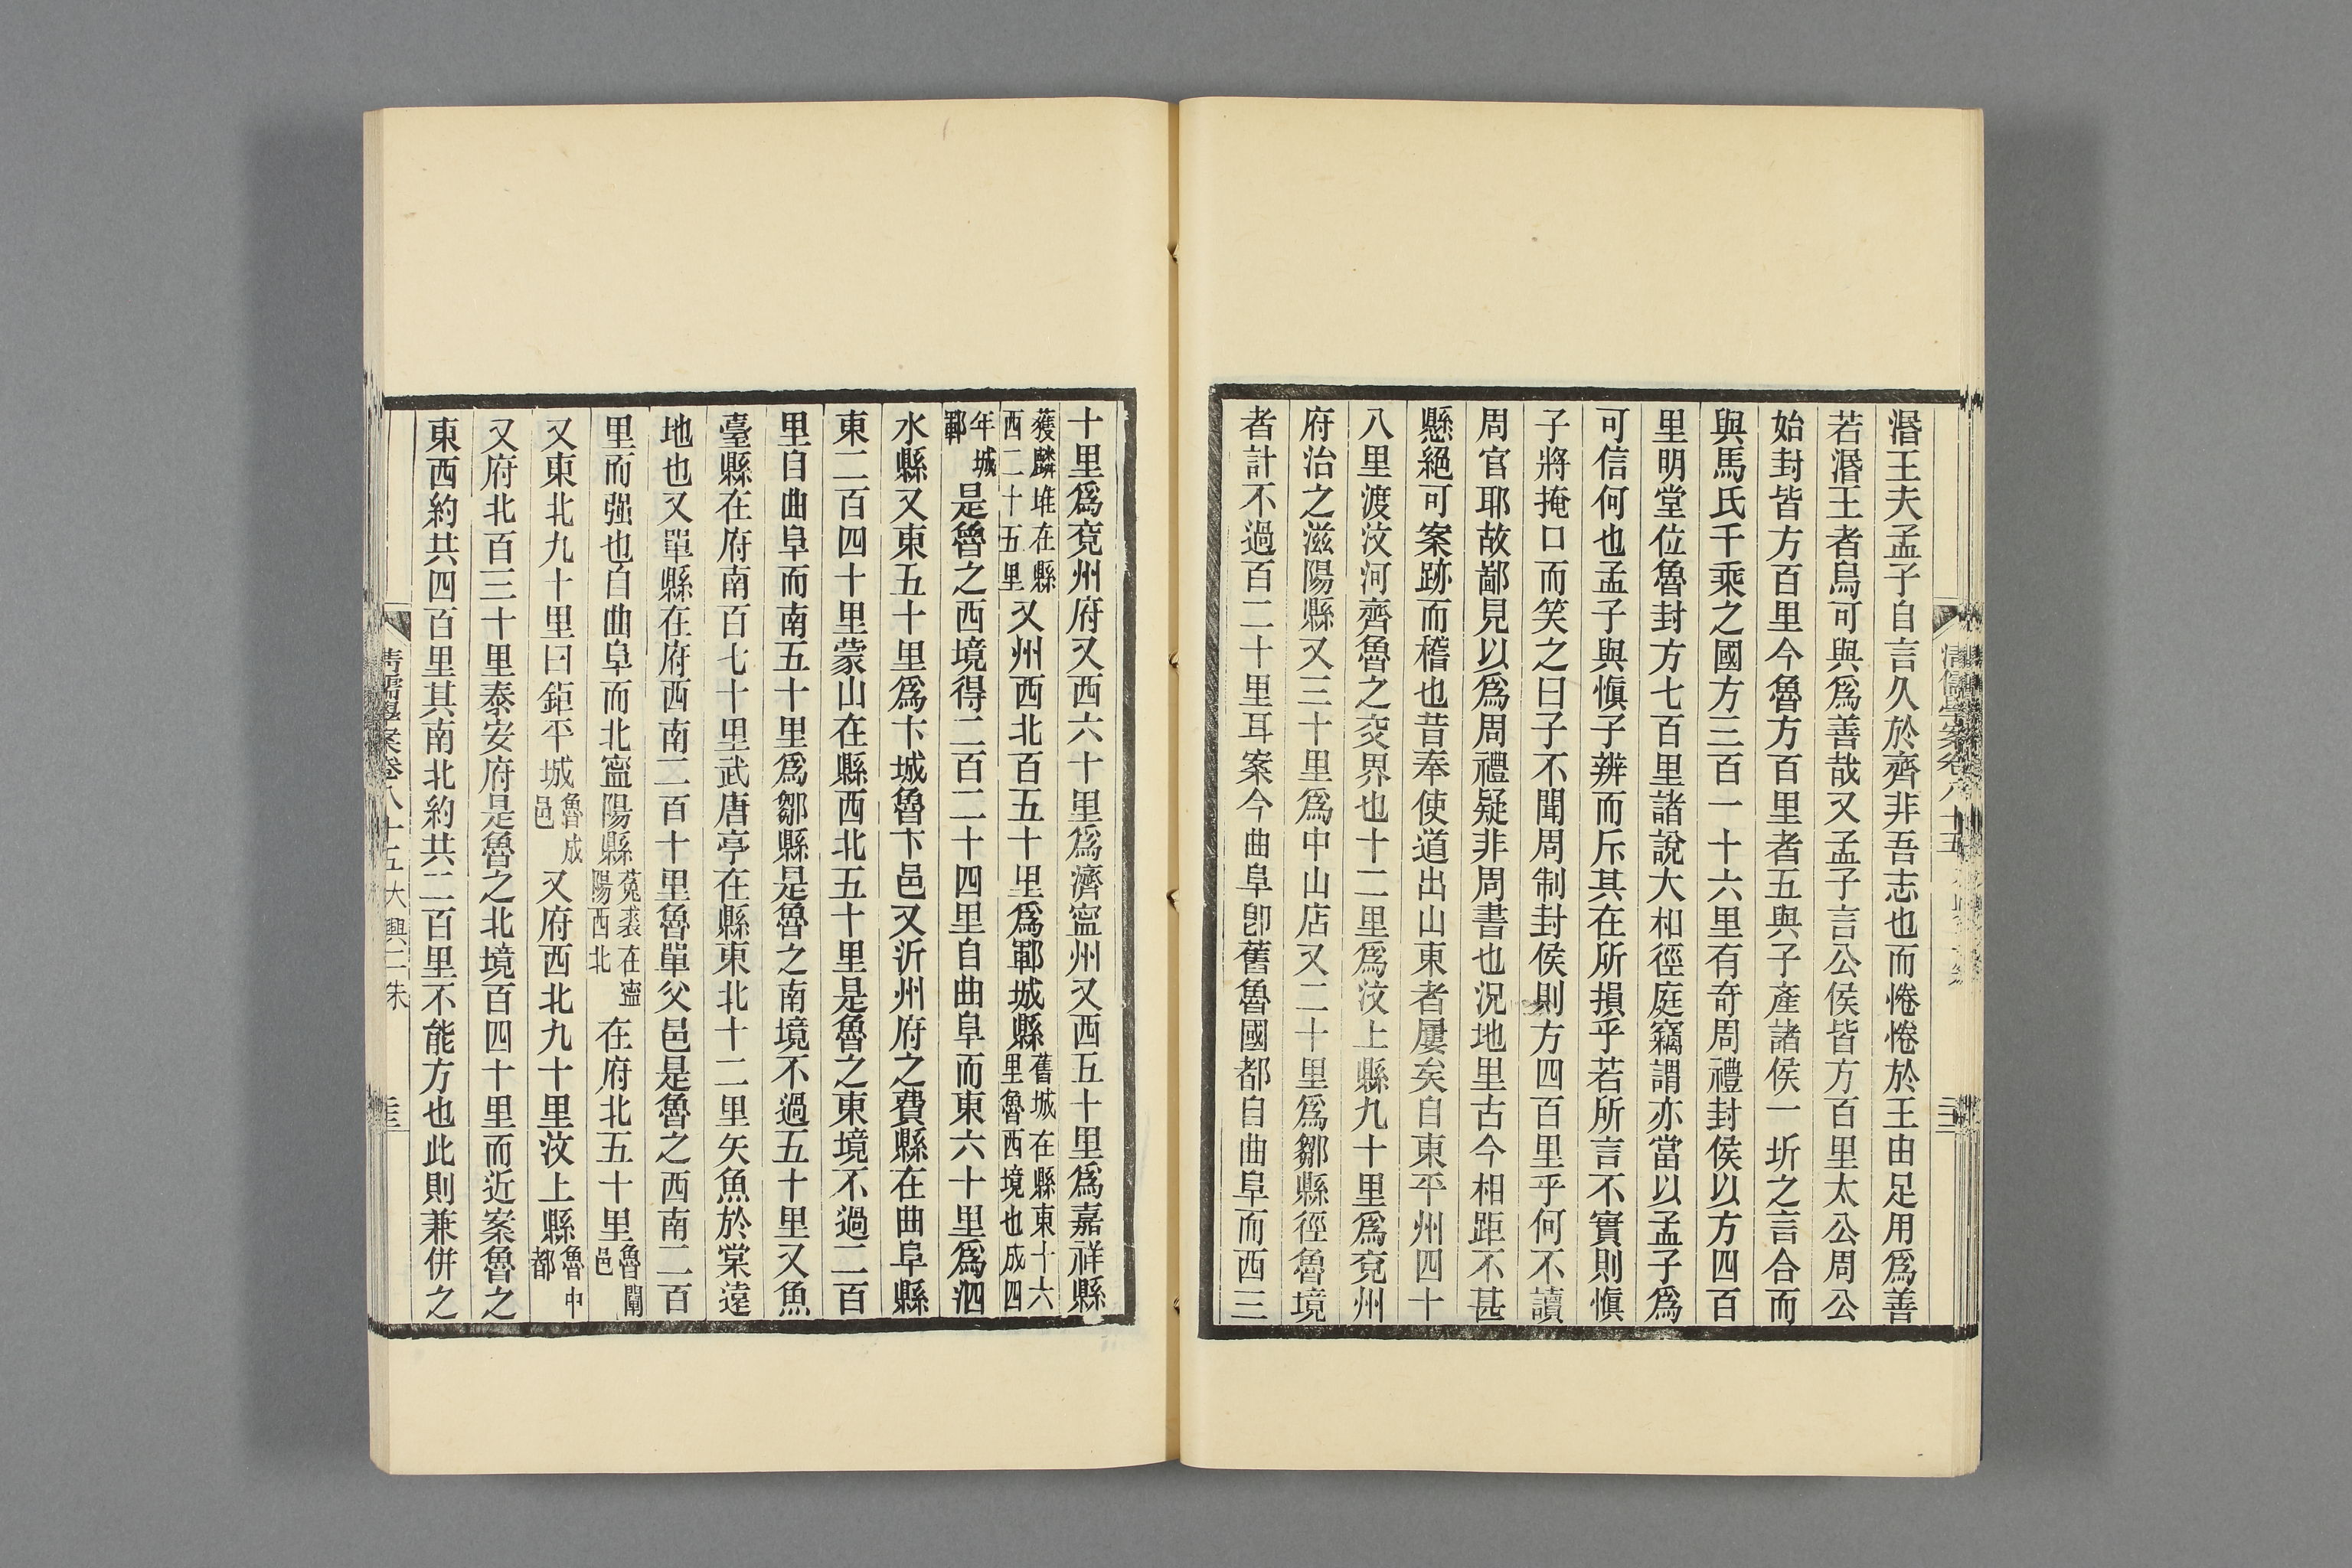 湣王夫孟子自言久於齊非吾志也而惓惓於王由足用爲善
若湣王者烏可與爲善哉又孟子言公侯皆方百里太公周公
始封皆方百里今魯方百里者五與子產諸侯一圻之言合而
與馬氏千乘之國方三百一十六里有奇周禮封侯以方四百
里明堂位魯封方七百里諸說大相徑庭竊謂亦當以孟子爲
可信何也孟子與愼子辨而斥其在所損乎若所言不實則愼
子將掩口而笑之曰子不聞周制封侯則方四百里乎何不讀
周官耶故鄙見以爲周禮疑非周書也況地里古今相距不甚
懸絕可案跡而稽也昔奉使道出山東者屢矣自東平州四十
八里渡汶河齊魯之交界也十二里爲汶上縣九十里爲兗州
府治之滋陽縣又三十里爲中山店又二十里爲鄒縣徑魯境
者計不過百二十里耳案今曲阜卽舊魯國都自曲阜而西三
十里爲兗州府又西六十里爲濟寧州又西五十里爲嘉祥縣
獲麟堆在縣西二十五里又州西北百五十里爲鄆城縣舊城在縣東十六里魯西境也成四
年城鄆是魯之西境得二百二十四里自曲阜而東六十里爲泗
水縣又東五十里爲卞城魯卞邑又沂州府之費縣在曲阜縣
東二百四十里蒙山在縣西北五十里是魯之東境不過二百
里自曲阜而南五十里爲鄒縣是魯之南境不過五十里又魚
臺縣在府南百七十里武唐亭在縣東北十二里矢魚於棠遠
地也又單縣在府西南二百十里魯單父邑是魯之西南二百
里而强也自曲阜而北寧陽縣菟裘在寧陽西北在府北五十里魯闡邑
又東北九十里曰鉅平城魯成邑又府西北九十里汶上縣魯中都
又府北百三十里泰安府是魯之北境百四十里而近案魯之
東西約共四百里其南北約共二百里不能方也此則兼併之
清儒學案卷八十五 大興二朱